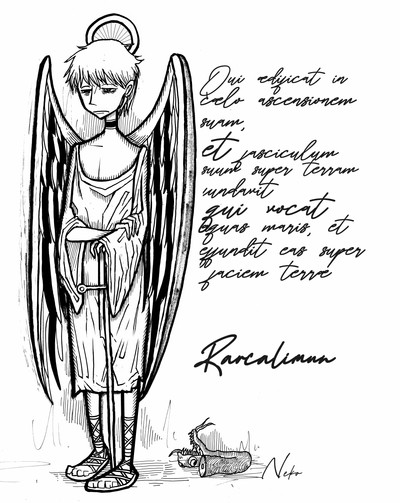 Qui ædificat in
cælo ascensionem
suam,
et fasciculum
suum super terram
fundavit
qui vocat
aquas maris, et
effundit eas super
faciem terræ
Rarcalimun
Neko